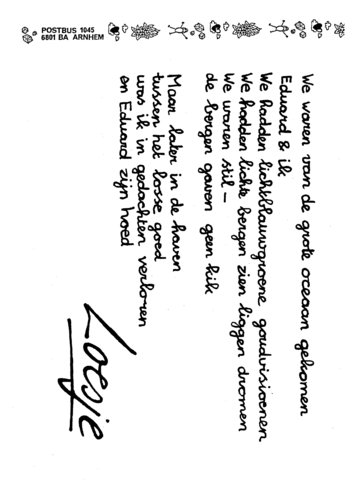 We waren van de grote oceaan gekomen
Eduard & ik
We hadden lichtblauwgroene goudvisioenen
We hadden lichte bergen zien liggen dromen
We waren stil -
de bergen gaven geen kik
Maar later in de haven
tussen het losse goed
was ik in gedachten verloren
en Eduard zijn hoed
Loesje
POSTBUS 1045
6801 BA ARNHEM